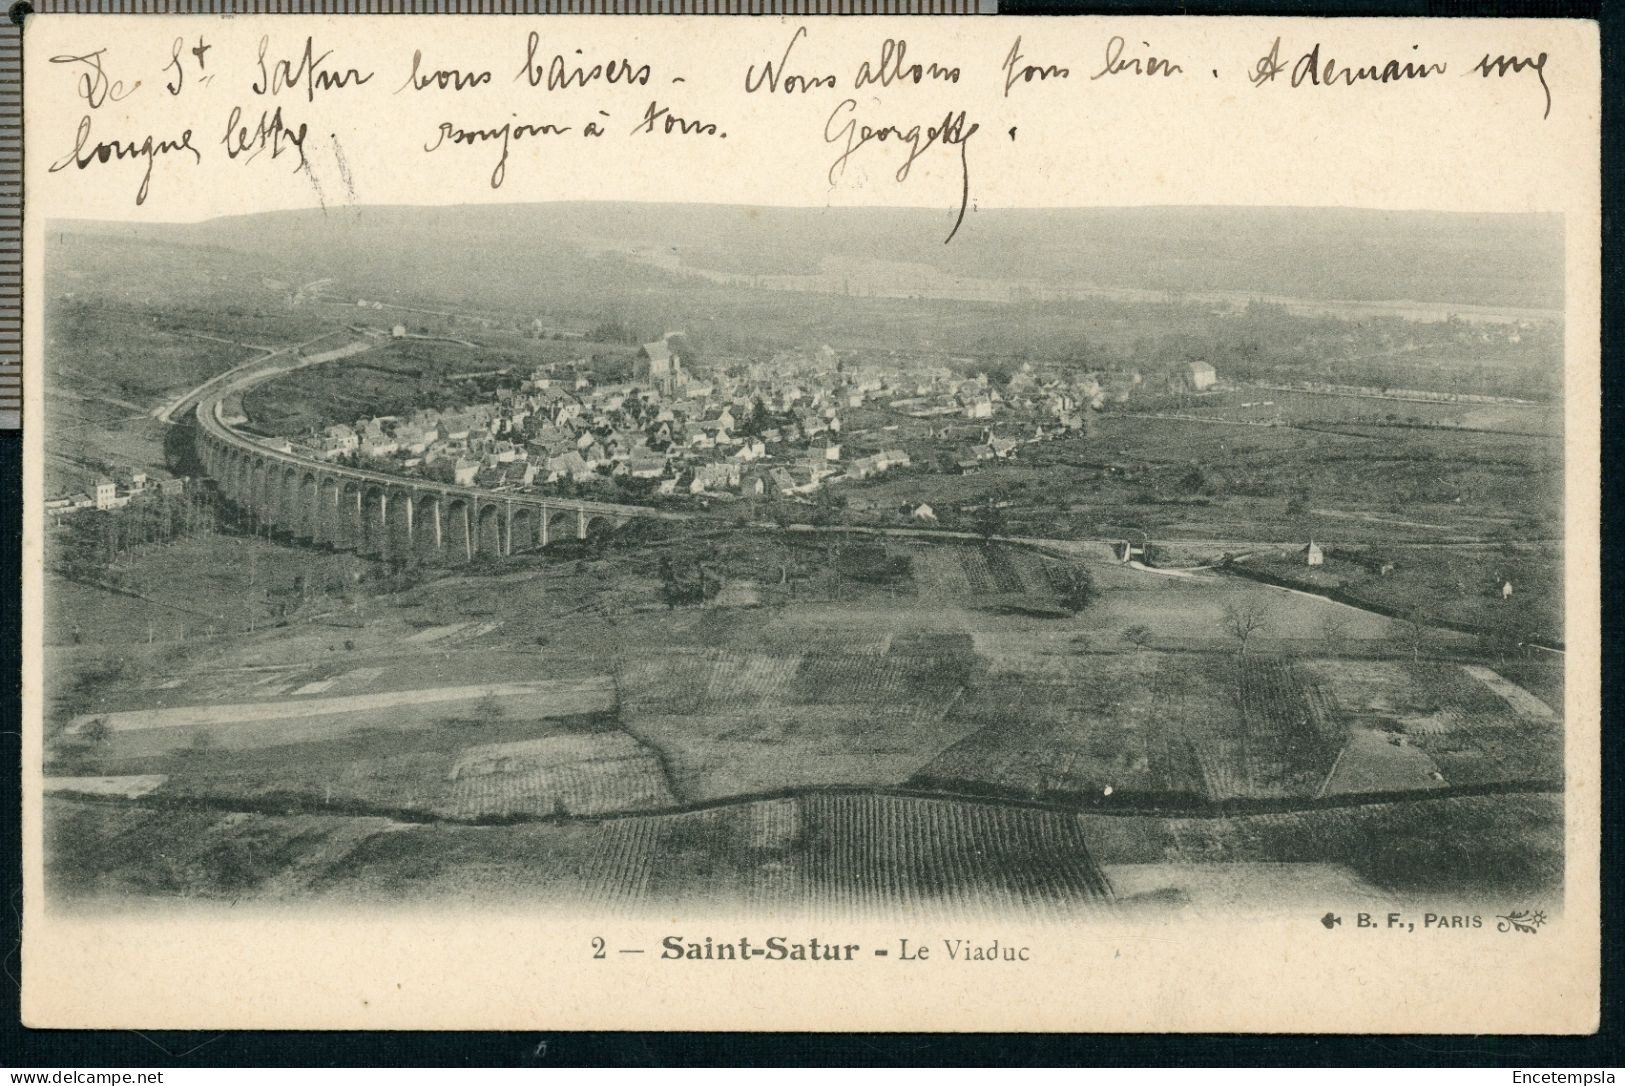 De St. Satur bons baisers - Nous allons tous bien. A demain une
longue lettre. Bonjour à tous. Georgette.
B. F., PARIS
2 — Saint-Satur - Le Viaduc
www.delcampe.net
Encetempsla